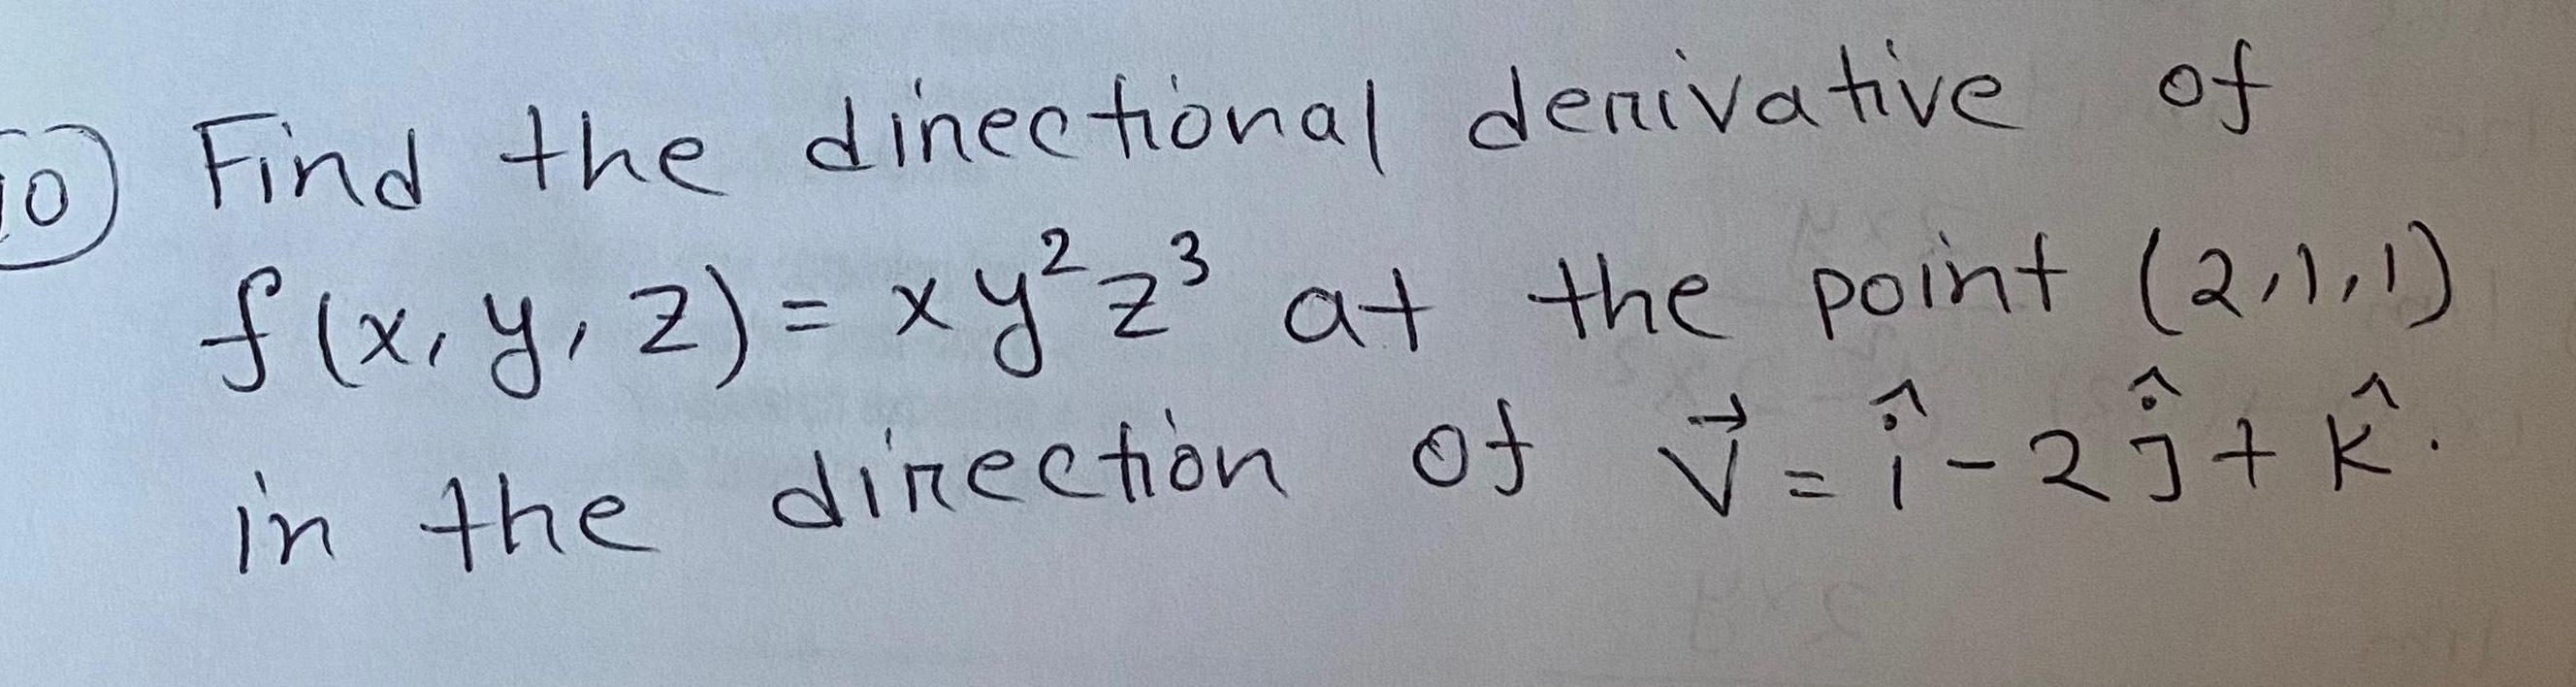 10) Find the directional derivative of
f(x, y, z) = xy²z³ at the point (2,1,1)
in the direction of v⃗ = î - 2ĵ + k̂.